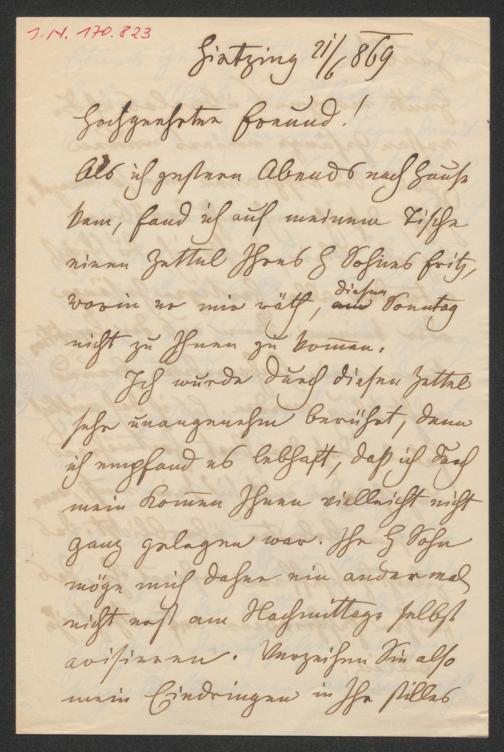 J.N. 170.823
Hietzing 21/6 869
Hochgeehrter Freund!
Als ich gestern Abends nach Hause
kam, fand ich auf meinem Tische
einen Zettel Ihres H Sohnes Fritz,
worin er mir räth, diesen Sonntag
nicht zu Ihnen zu kommen.
Ich wurde durch diesen Zettel
sehr unangenehm berührt, denn
ich empfand es lebhaft, daß ich durch
mein Kommen Ihnen vielleicht nicht
ganz gelegen war. Ihr H Sohn
möge mich daher ein andermal
nicht erst am Nachmittage selbst
avisieren. Verzeihen Sie also
mein Eindringen in Ihr stilles